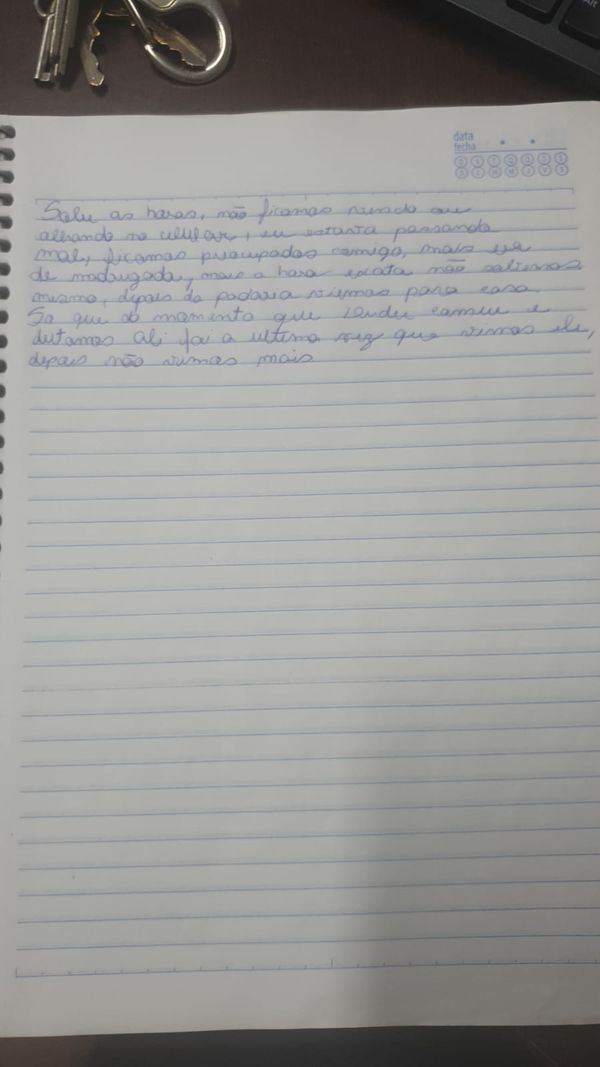 data
fecha
Sobre as horas, não ficamos vendo ou
olhando no celular, eu estava passando
mal, ficamos preocupados comigo, mais era
de madrugada, mais a hora exata não sabemos
mesmo, depois da padaria viemos para casa.
So que do momento que Sander comeu e
deitamos ali foi a ultima vez que vimos ele,
depois não vimos mais